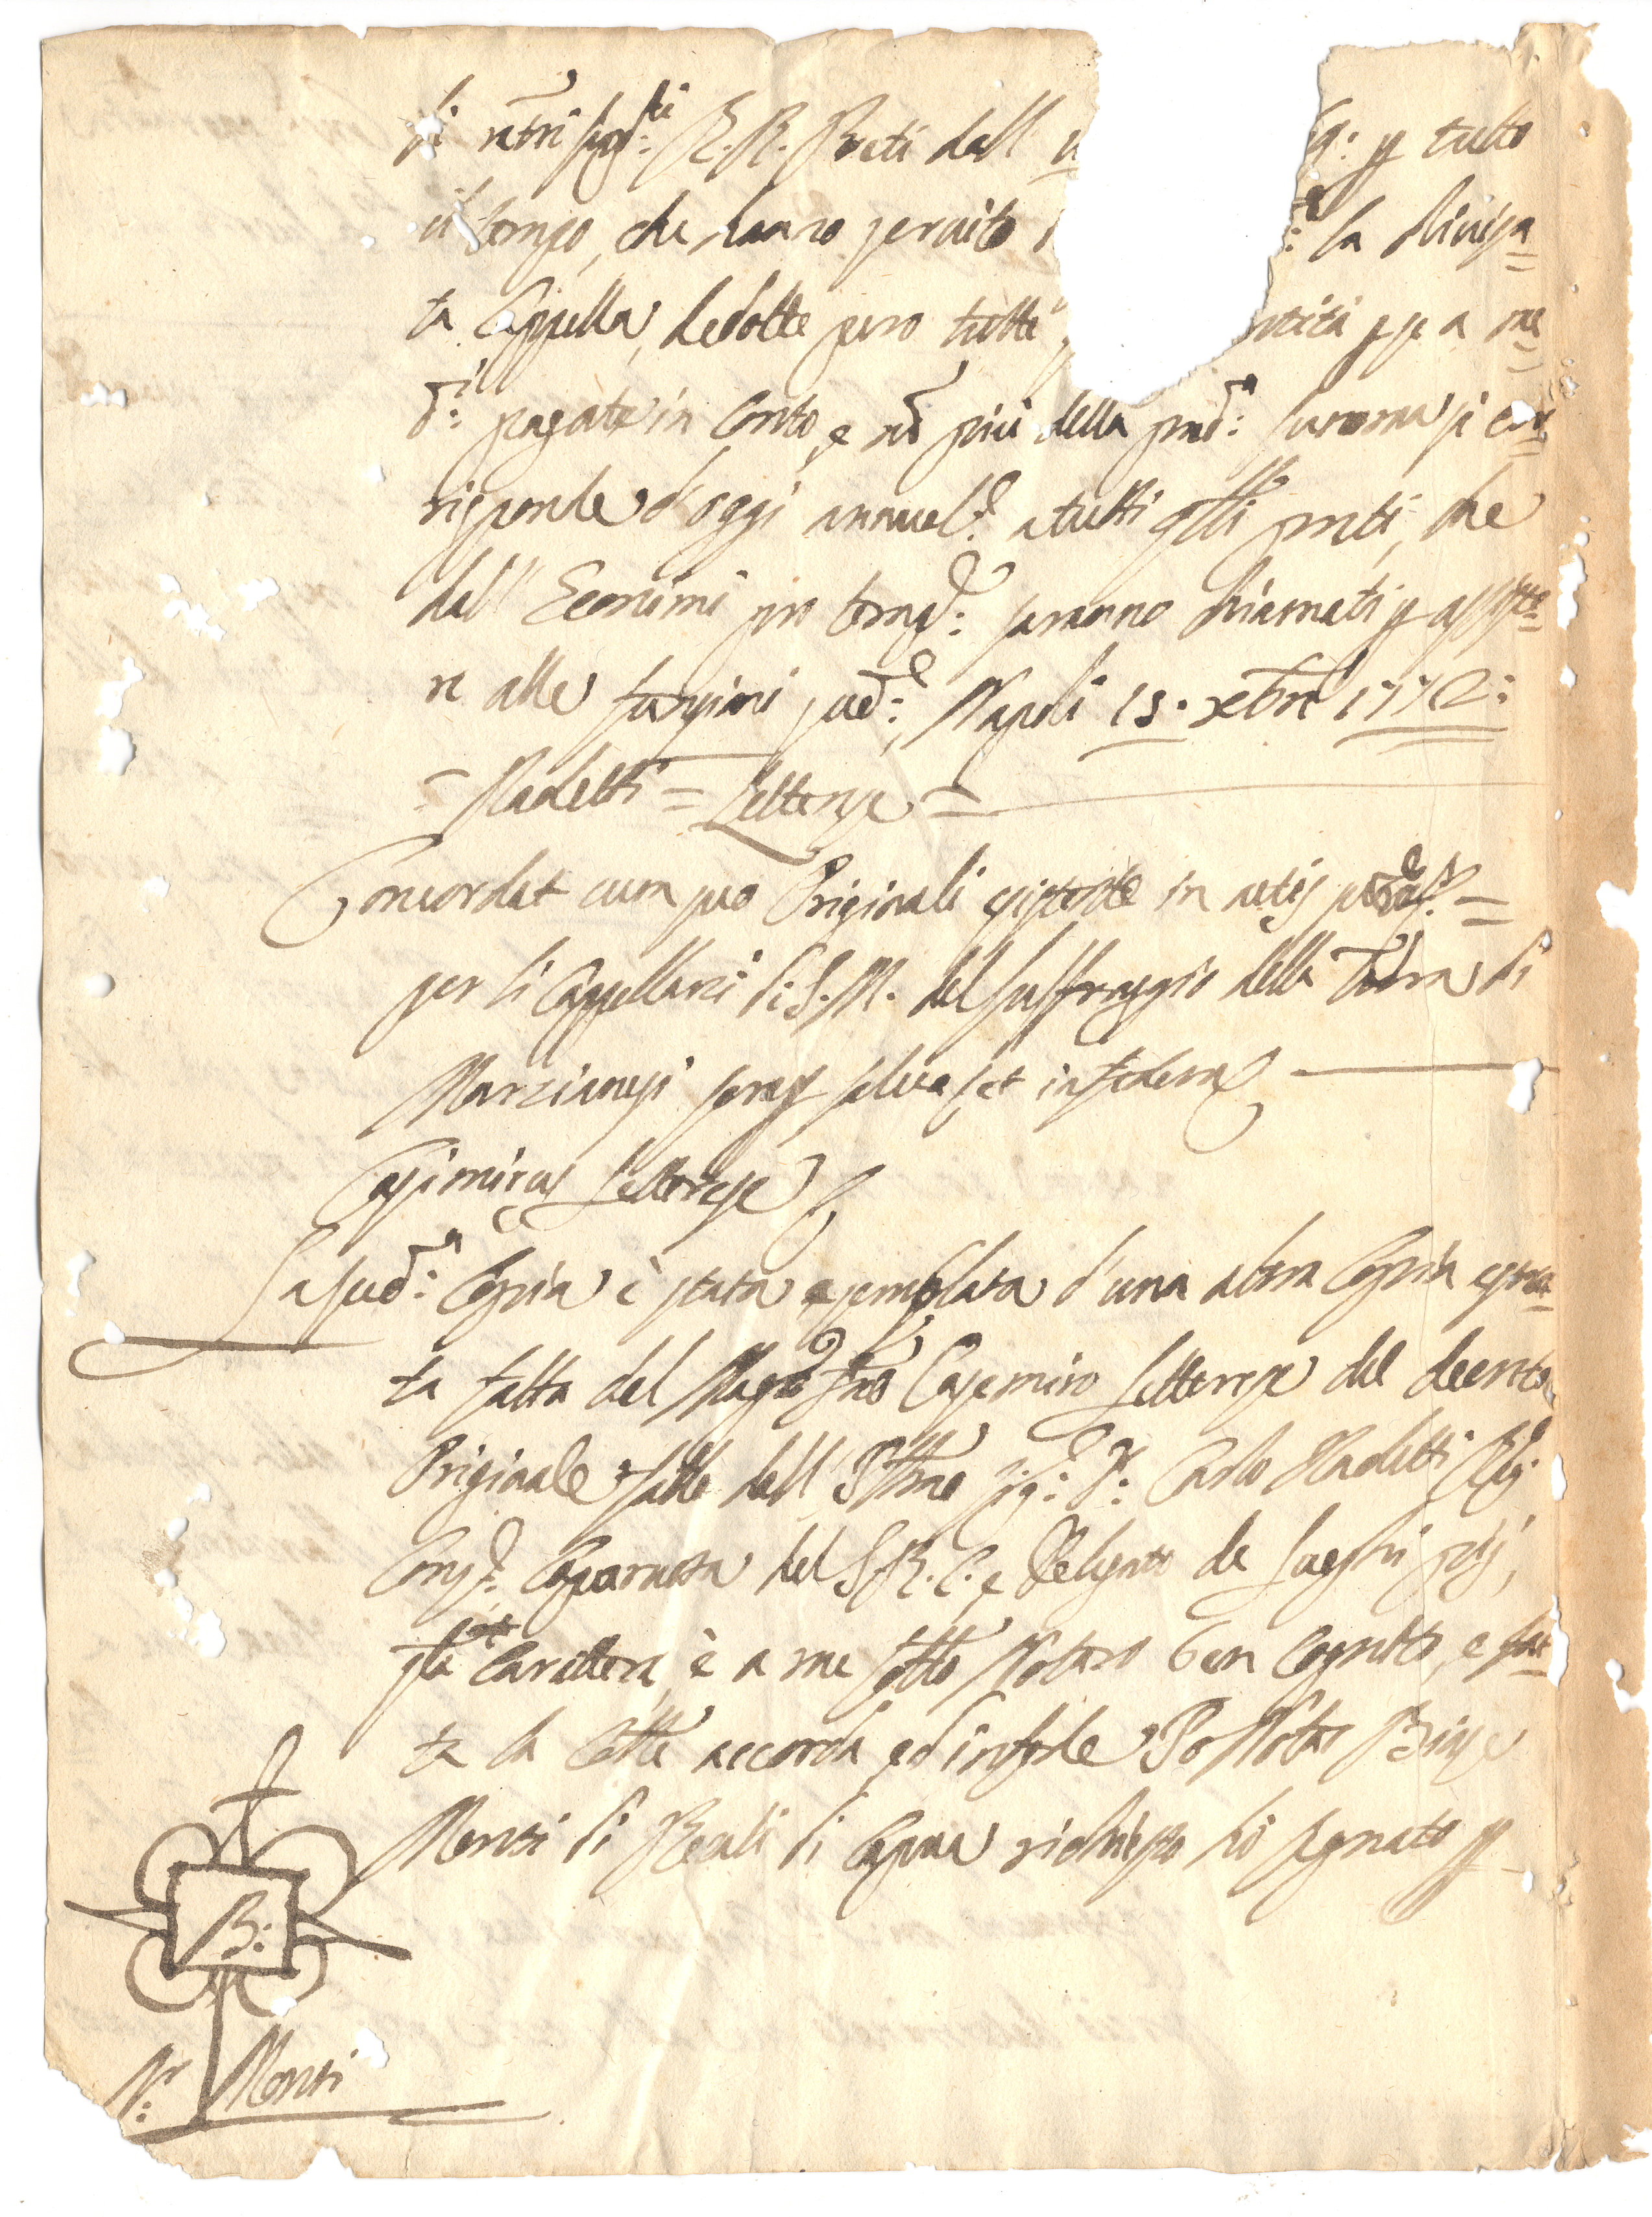 di nr̃i sud:ti R.R. Preti dall' u q: p tutto
il tempo, che hanno servito : la divisa=
ta Cappella, dedotte però tutte ntità p essa me=
d:i pagate in conto, e nõ più della pred:a summa si cor=
risponde d'oggi annual:e a tutti q̃lli preti, che
dall' Economi pro temp:e saranno chiamati p assiste=
re alle funzioni sud:e, Napoli 13. xbr̃e 1772:
= Nadelli = Letterese =
Concordat cum suo Originali existente in actis =
per li Cappellani di S. M. del Suffraggio della Terra di
Marcianisi semp salva et in fidem
Casimirus Letterese
La sud:a Copia è stata esemplata d'una altra Copia estrat=
ta fatta del Mag:co Casemiro Letterese del decreto
Originale fatto dell' Ill̃mo Sig:r D: Carlo Nadelli Reg:
Cons:e Caporuota del S.R.C. e Delegato de luoghi pij,
q̃le carattere è a me sotto Notaro ben cognito, e fat=
ta la Coll̃e accorda, ed in fede Io Notar Biase
Monti di Recali di Capua richiesto hò segnato p
B:
N:r Monti